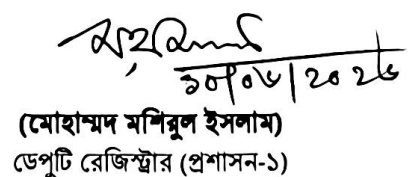 ১০/০৬/২০২৬
(মোহাম্মদ মশিরুল ইসলাম)
ডেপুটি রেজিস্ট্রার (প্রশাসন-১)